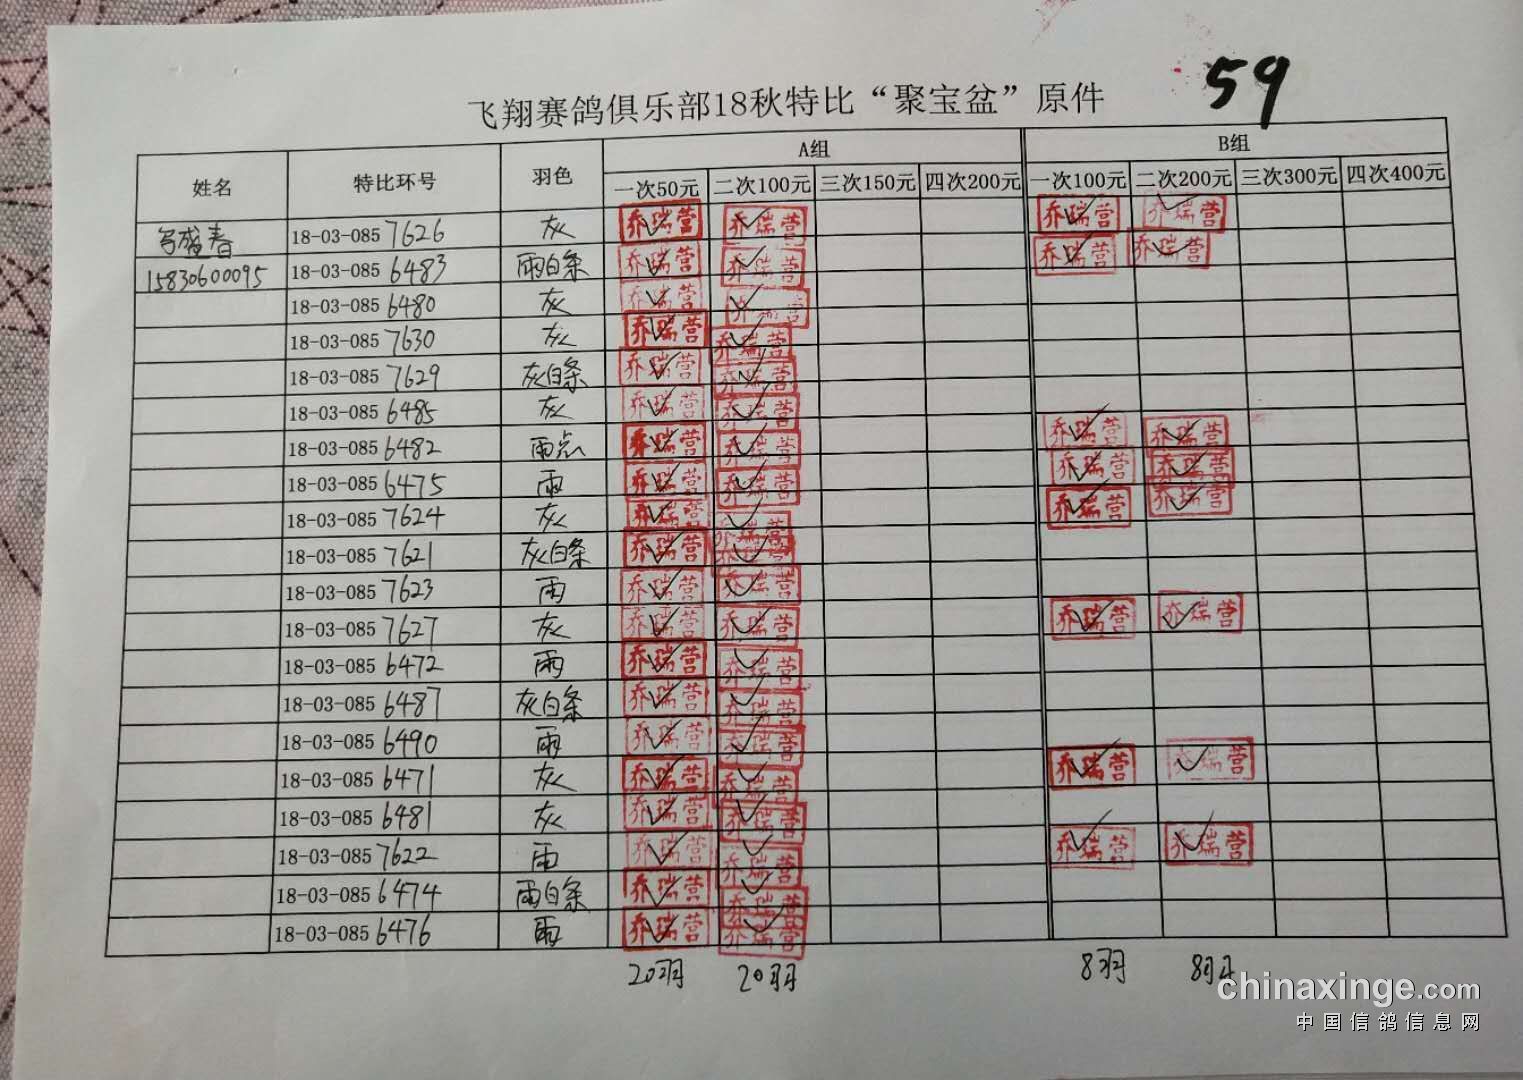 59
飞翔赛鸽俱乐部18秋特比“聚宝盆”原件
姓名 特比环号 羽色 A组 B组
一次50元 二次100元 三次150元 四次200元 一次100元 二次200元 三次300元 四次400元
盛春 18-03-085 7626 灰 乔瑞营 乔瑞营 乔瑞营 乔瑞营
15830600095 18-03-085 6483 雨白条 乔瑞营 乔瑞营 乔瑞营 乔瑞营
18-03-085 6480 灰 乔瑞营 乔瑞营
18-03-085 7630 灰 乔瑞营 乔瑞营
18-03-085 7629 灰白条 乔瑞营 乔瑞营
18-03-085 6485 灰 乔瑞营 乔瑞营
18-03-085 6482 雨点 乔瑞营 乔瑞营 乔瑞营 乔瑞营
18-03-085 6475 雨 乔瑞营 乔瑞营 乔瑞营 乔瑞营
18-03-085 7624 灰 乔瑞营 乔瑞营 乔瑞营 乔瑞营
18-03-085 7621 灰白条 乔瑞营 乔瑞营
18-03-085 7623 雨 乔瑞营 乔瑞营
18-03-085 7627 灰 乔瑞营 乔瑞营 乔瑞营 乔瑞营
18-03-085 6472 雨 乔瑞营 乔瑞营
18-03-085 6487 灰白条 乔瑞营 乔瑞营
18-03-085 6490 雨 乔瑞营 乔瑞营
18-03-085 6471 灰 乔瑞营 乔瑞营 乔瑞营 乔瑞营
18-03-085 6481 灰 乔瑞营 乔瑞营
18-03-085 7622 雨 乔瑞营 乔瑞营 乔瑞营 乔瑞营
18-03-085 6474 雨白条 乔瑞营 乔瑞营
18-03-085 6476 雨 乔瑞营 乔瑞营
20羽 20羽 8羽 8羽
chinaxinge.com
中国信鸽信息网